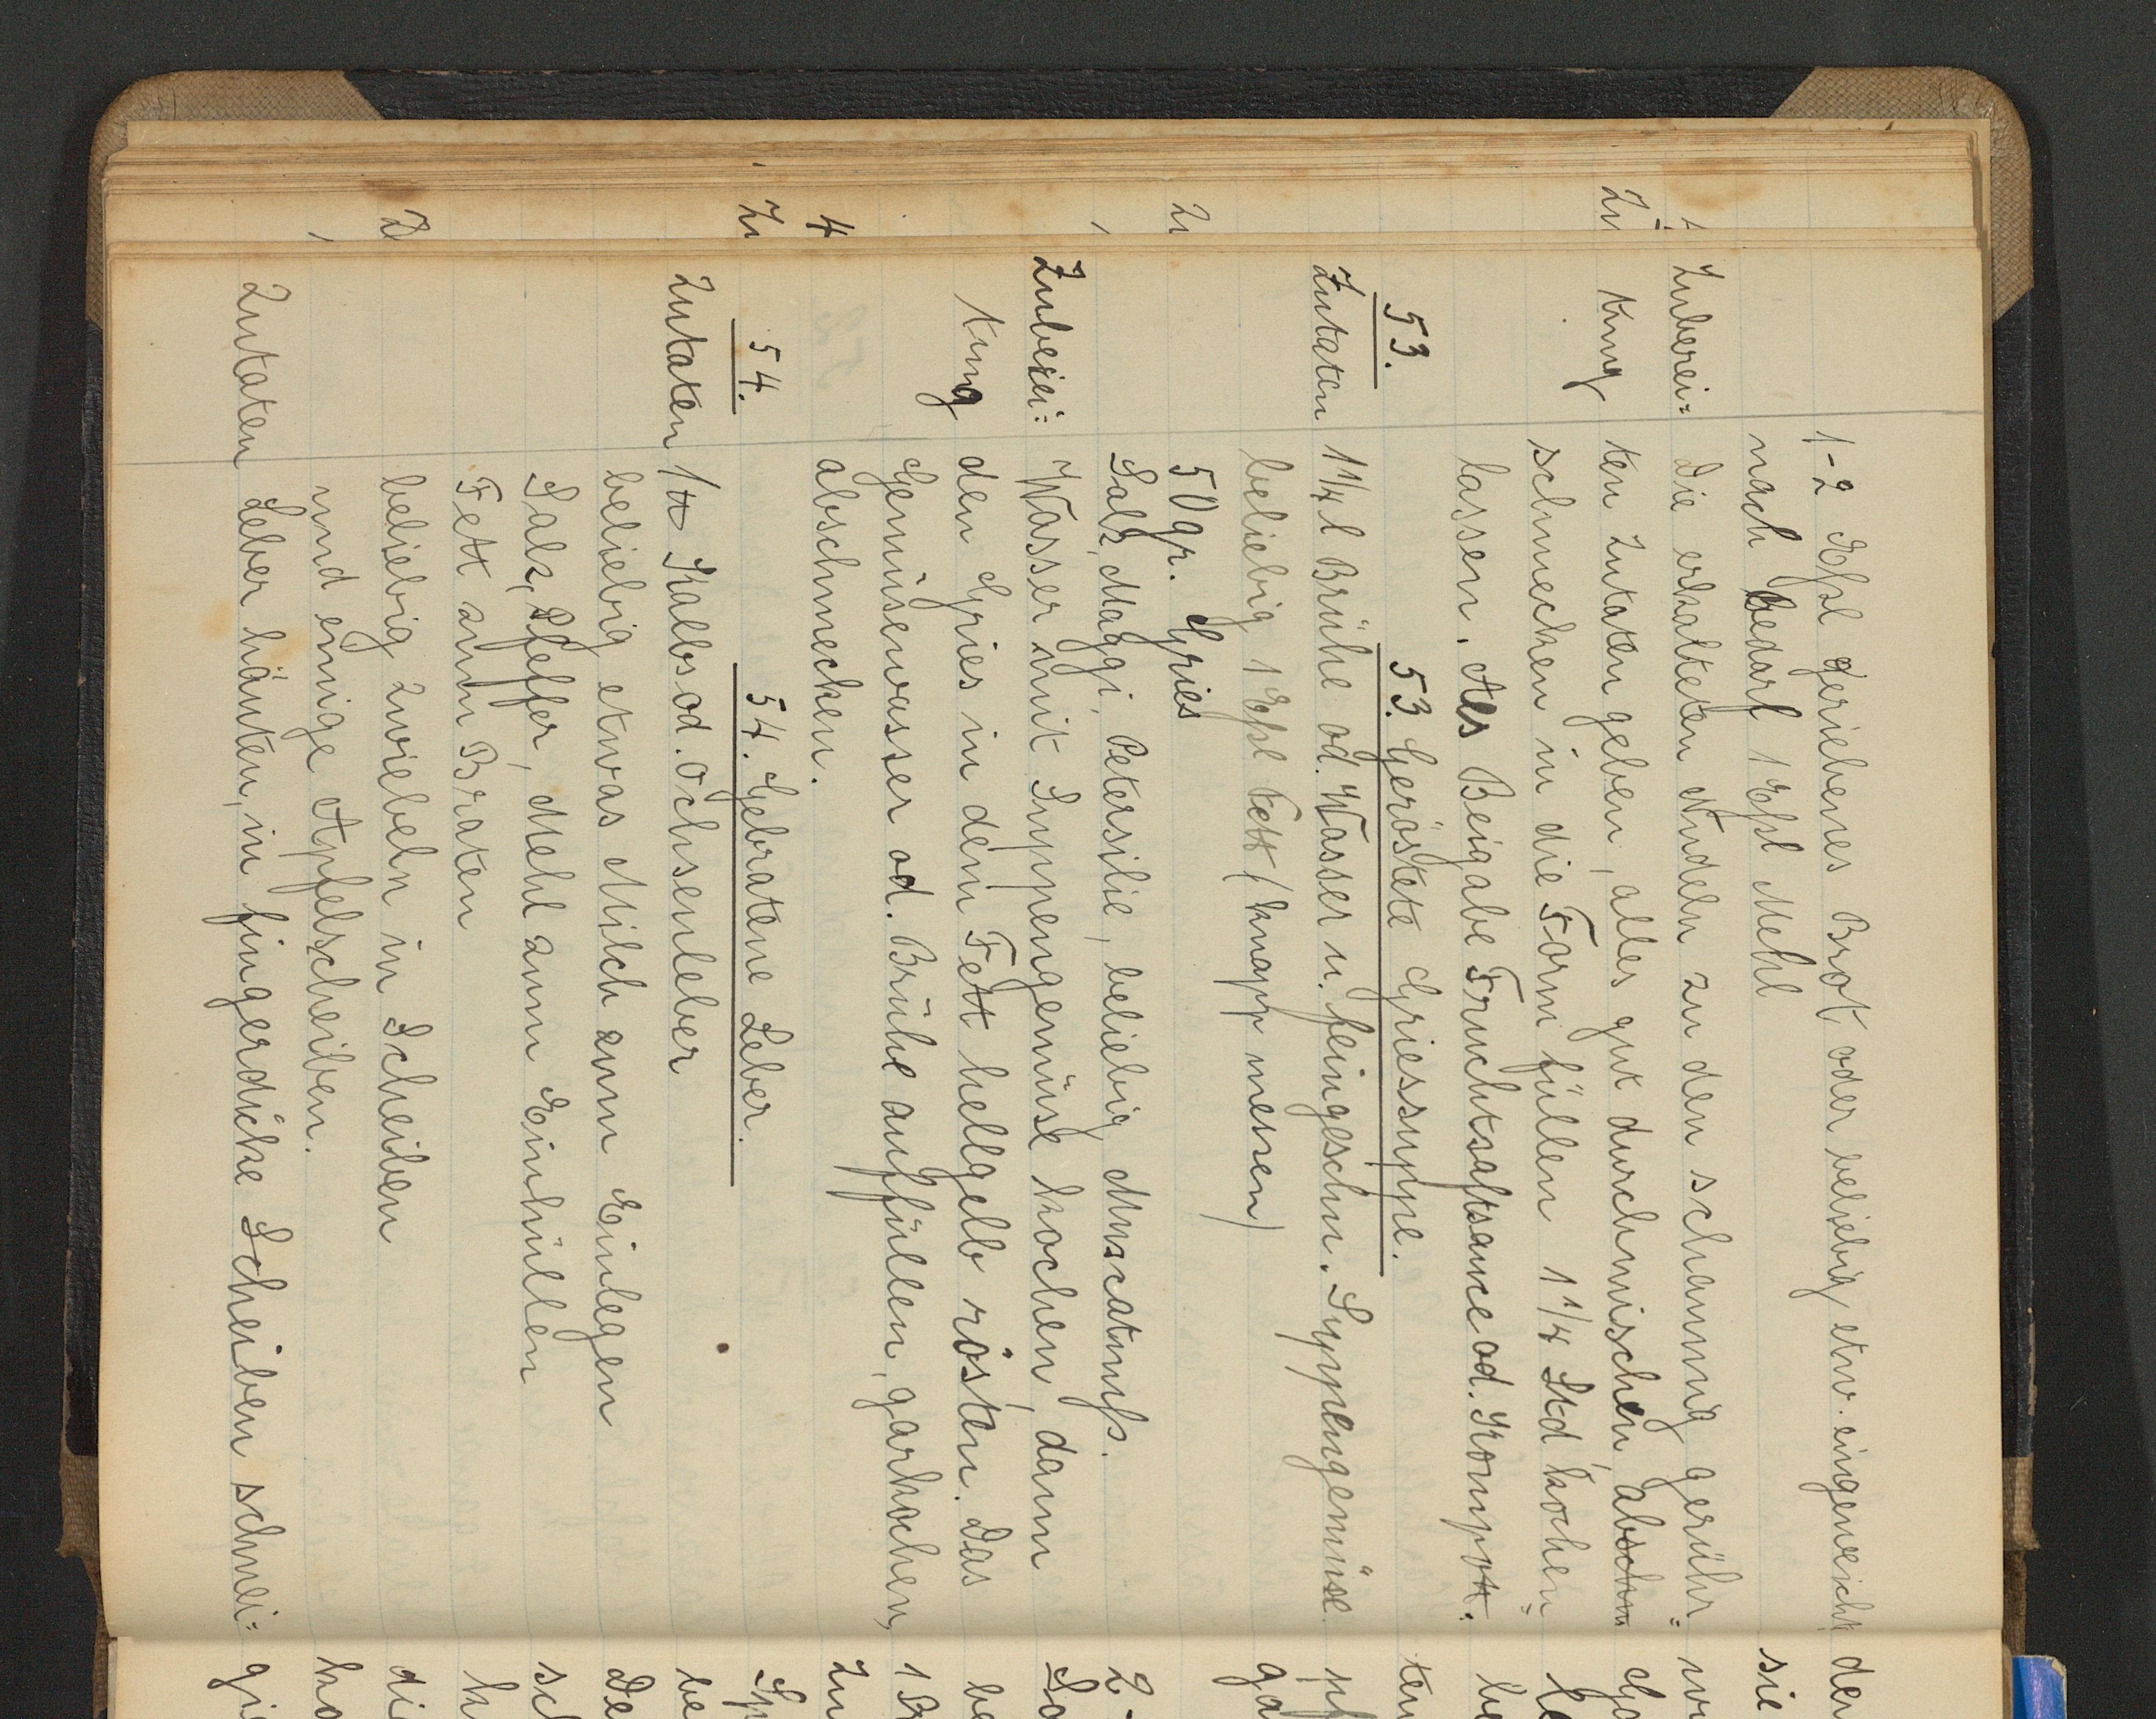 1-2 Eßl geriebenes Brot oder beliebig etw. eingeweicht
nach bedarf 1 Eßl Mehl
Zuberei= Die erkalteten Nudeln zu den schaumig gerühr=
tung ten Zutaten geben, alles gut durchmischen, abschm
schmecken in die Form füllen 1 1/4 Std, kochen
lassen. Als Beigabe Fruchtsaftsauce od. Kompott.
53. 53. Geröstete Griessuppe.
Zutaten 1 1/4 l Brühe od. Wasser u. feingeschn. Suppengemüse
beliebig 1 Eßl Fett (knapp messen)
50 gr. Gries
Salz, Maggi, Petersilie, beliebig Muscatnuß.
Zuberei: Wasser mit Suppengemüse kochen, dann
tung den Gries in dem Fett hellgelb rösten. Das
Gemüsewasser od. Brühe auffüllen, garkochen,
abschmecken.
54. 54. Gebratene Leber.
Zutaten 1 ℔ Kalbs od. Ochsenleber
beliebig etwas Milch zum Einlegen
Salz, Pfeffer, Mehl zum Einhüllen
Fett zum Braten
beliebig Zwiebeln in Scheiben
und einige Apfelscheiben.
Zutaten Leber häuten, in fingerdicke Scheiben schnei=